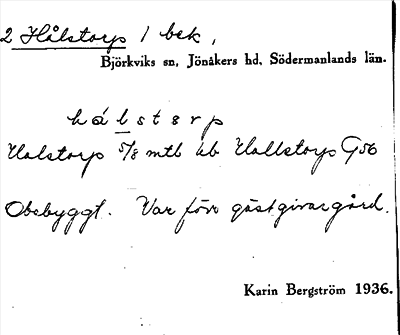 2 Hålstorp 1 bek,
Björkviks sn, Jönåkers hd, Södermanlands län.
hálstərp
Halstorp 5/8 mtl ab Hallstorp G56
Obebyggt. Var förr gästgivargård.
Karin Bergström 1936.